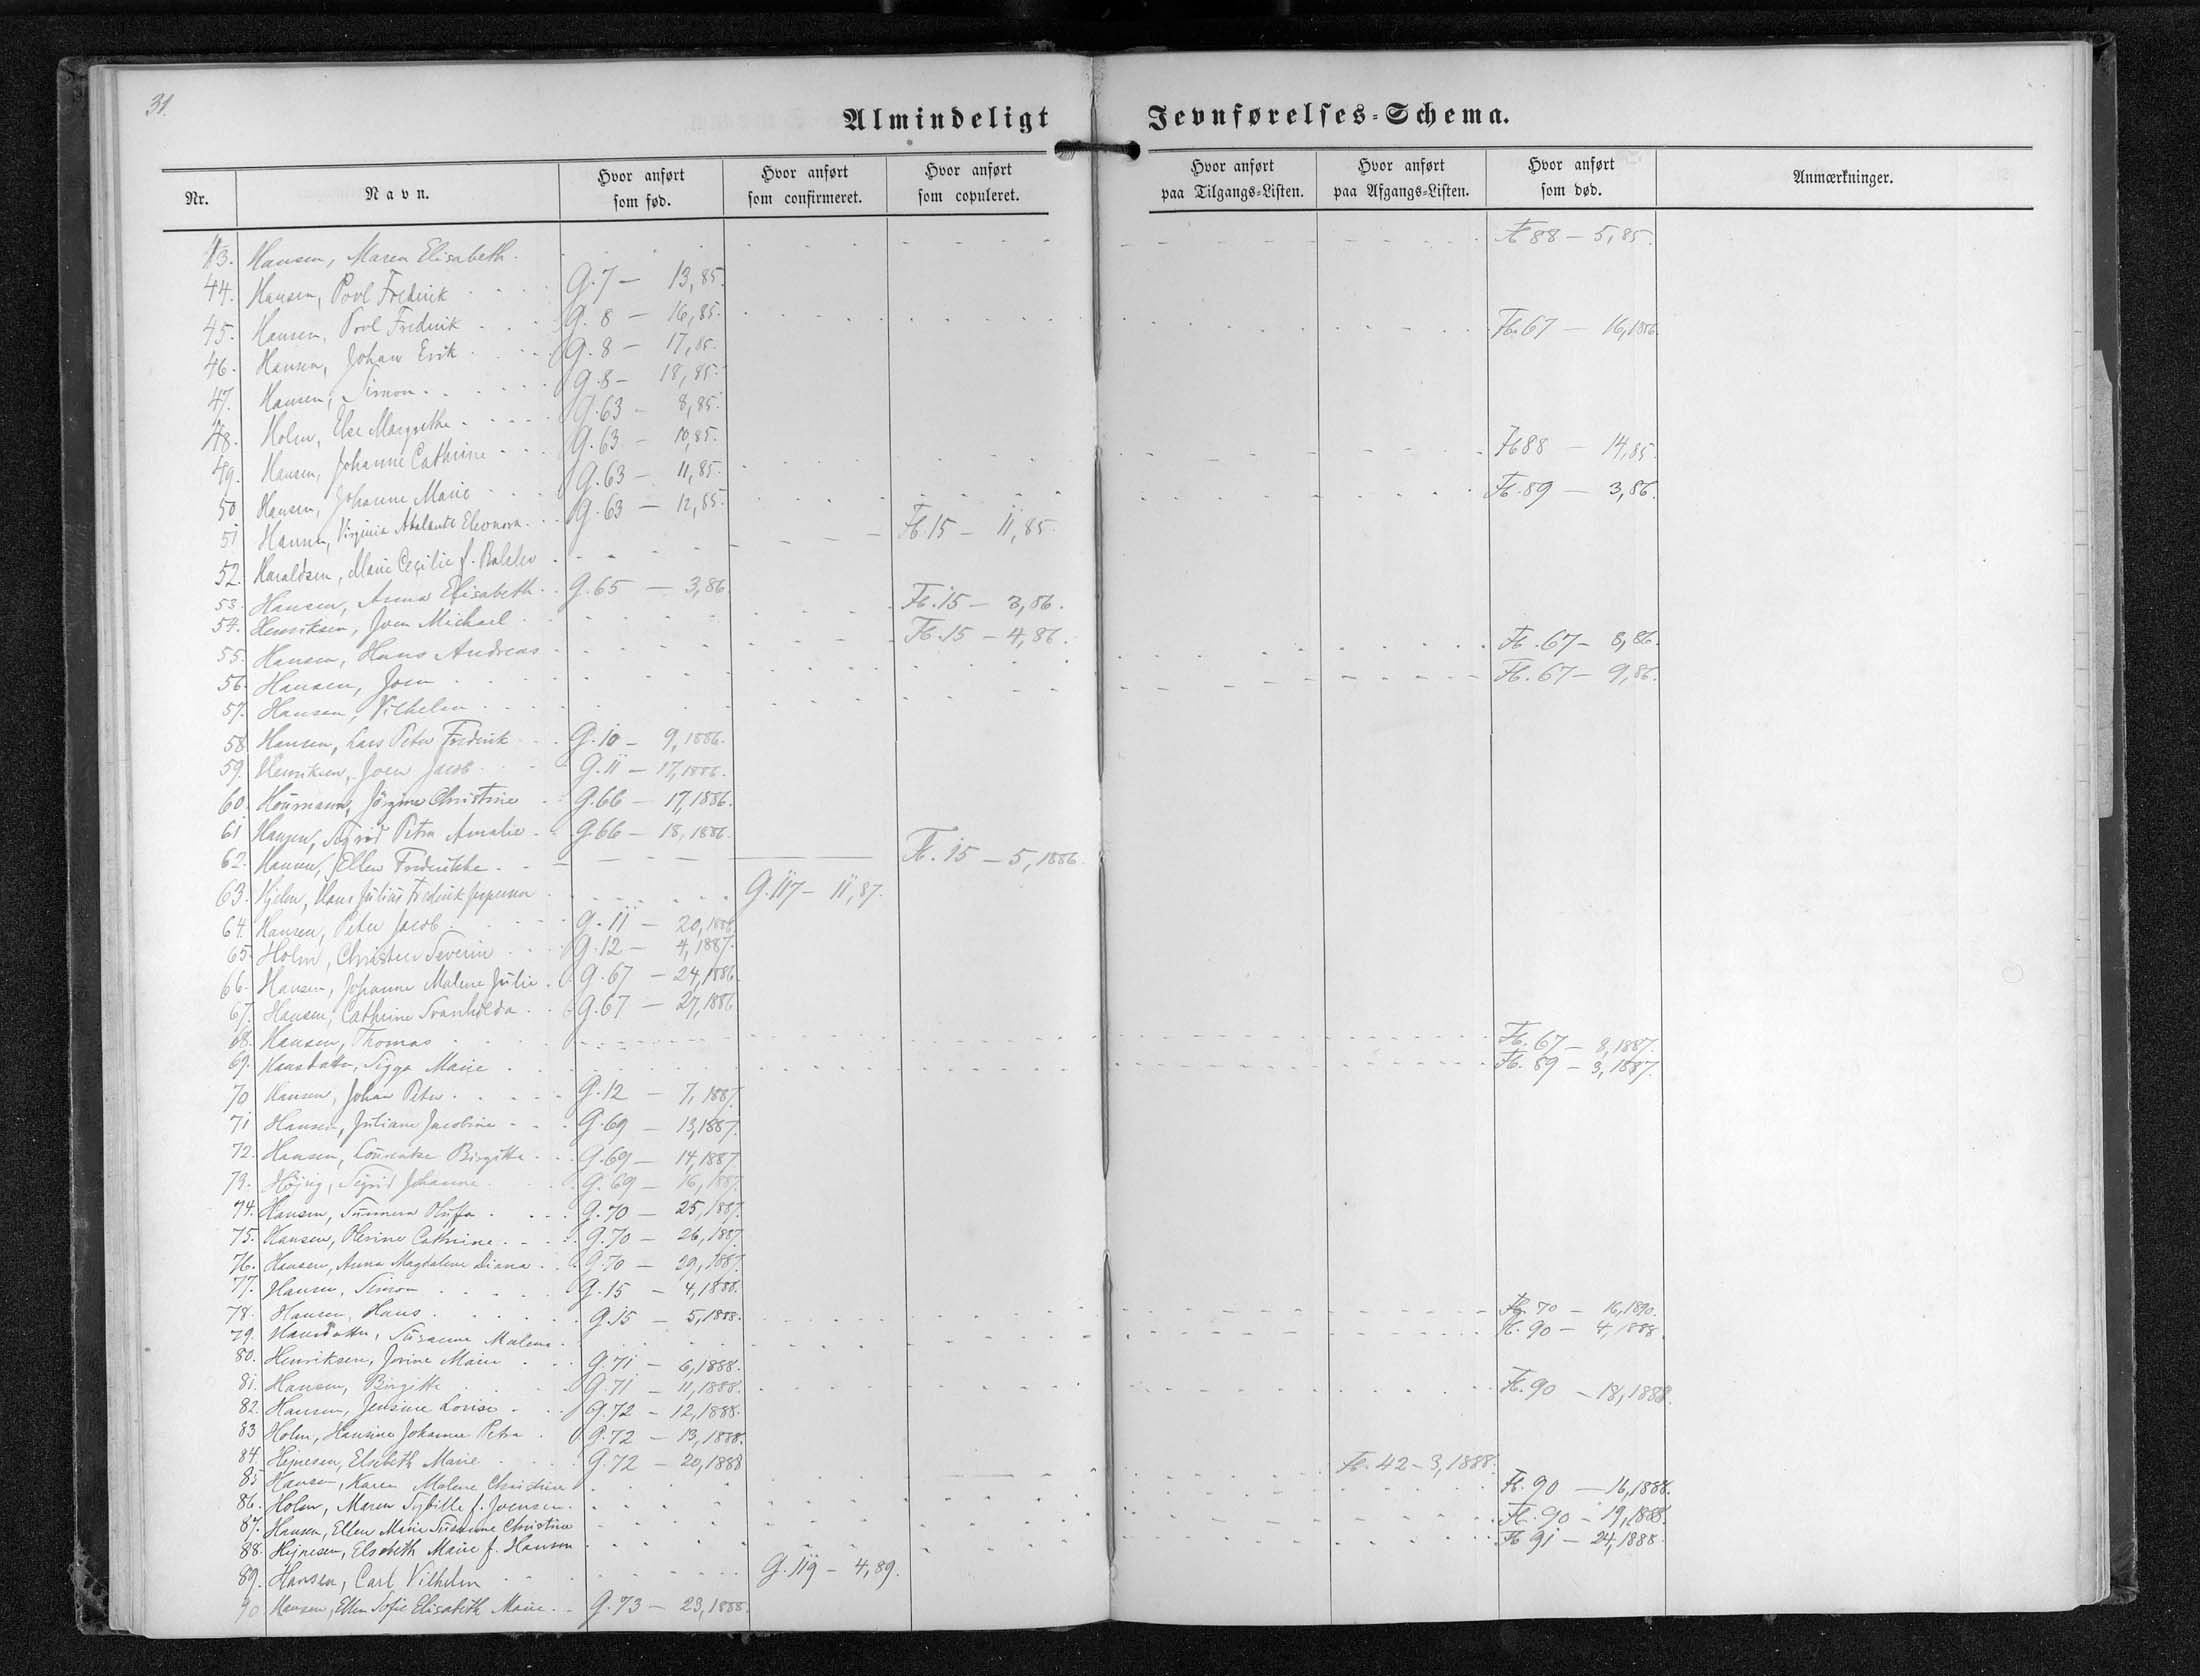 31.
Almindeligt Jevnførelses-Schema.
Nr. Navn. Hvor anført som fød. Hvor anført som confirmeret. Hvor anført som copuleret. Hvor anført paa Tilgangs-Listen. Hvor anført paa Afgangs-Listen. Hvor anført som død. Anmærkninger.
43. Hansen, Maren Elisabeth. 88 – 5,85.
44. Hansen, Povl Frederik G. 7 – 13,85.
45. Hansen, Povl Frederik G. 8 – 16,85. Fb. 67 – 16,1886.
46. Hansen, Johan Erik G. 8 – 17,85.
47. Hansen, Simon G. 8 – 18,85.
48. Holm, Else Margrethe G. 63 – 8,85.
49. Hansen, Johanne Cathrine G. 63 – 10,85. Fb 88 – 14,85.
50 Hansen, Johanne Marie G. 63 – 11,85. Fb. 89 – 3,86.
51 Hansen, Virginia Atalante Eleonora G. 63 – 12,85.
52. Haraldsen, Marie Cecilie f. Fb. 15 – 11,85.
53. Hansen, Anna Elisabeth G. 65 – 3,86.
54. Henriksen, Joen Michael Fb. 15 – 3,86.
55. Hansen, Hans Andreas Fb. 15 – 4,86.
56. Hansen, Joen Fb. 67 – 8,86.
57. Hansen, Vilhelm Fb. 67 – 9,86.
58. Hansen, Lars Peter Frederik G. 10 – 9,1886.
59. Henriksen, Joen Jacob G. 11 – 17,1886.
60. Hourmann, Jörgine Christine G. 66 – 17,1886.
61 Hansen, Sigrid Petra Amalie G. 66 – 18,1886.
62. Hansen, Ellen Frederikke Fb. 15 – 5,1886.
63. Hjelm, Hans Julius Frederik Jeppesen G. 117 – 11,87.
64. Hansen, Peter Jacob G. 11 – 20,1886
65. Holm, Christen Severin G. 12 – 4,1887.
66. Hansen, Johanne Malene Julie G. 67 – 24,1886
67. Hansen, Cathrine Svanhilda G. 67 – 27,1886
68. Hansen, Thomas Fb. 67 – 8,1887.
69. Hansdatter, Sigga Marie Fb. 89 – 3,1887.
70 Hansen, Johan Peter G. 12 – 7,1887.
71 Hansen, Juliane Jacobine G. 69 – 13,1887.
72. Hansen, Lourentse Birgitte G. 69 – 14,1887
73. Højrig, Sigrid Johanne G. 69 – 16,1887.
74. Hansen, Sunneva Olufa G. 70 – 25,1887.
75. Hansen, Olevine Cathrine G. 70 – 26,1887.
76. Hansen, Anna Magdalene Diana G. 70 – 29,1887.
77. Hansen, Simon G. 15 – 4,1888.
78. Hansen, Hans G. 15 – 5,1888. Fb. 70 – 16,1890.
79. Hansdatter, Susanne Malene Fb. 90 – 4,1888.
80. Henriksen, Jovine Marie G. 71 – 6,1888.
81. Hansen, Birgitte G. 71 – 11,1888. Fb. 90 – 18,1888.
82. Hansen, Jensine Lovise G. 72 – 12,1888.
83 Holm, Hansine Johanne Petra G. 72 – 13,1888.
84. Hejnesen, Elsebeth Marie G. 72 – 20,1888
85 Hansen, Karen Malene Christine Fb. 42 – 3,1888.
86. Holm, Maren Sybille f. Joensen. Fb. 90 – 16,1888.
87. Hansen, Ellen Marie Susanne Christine Fb. 90 – 19,1888.
88. Hejnesen, Elsebeth Marie f. Hansen Fb 91 – 24,1888.
89. Hansen, Carl Vilhelm G. 119 – 4,89.
90 Hansen, Ellen Sofie Elisabeth Marie G. 73 – 23,1888.